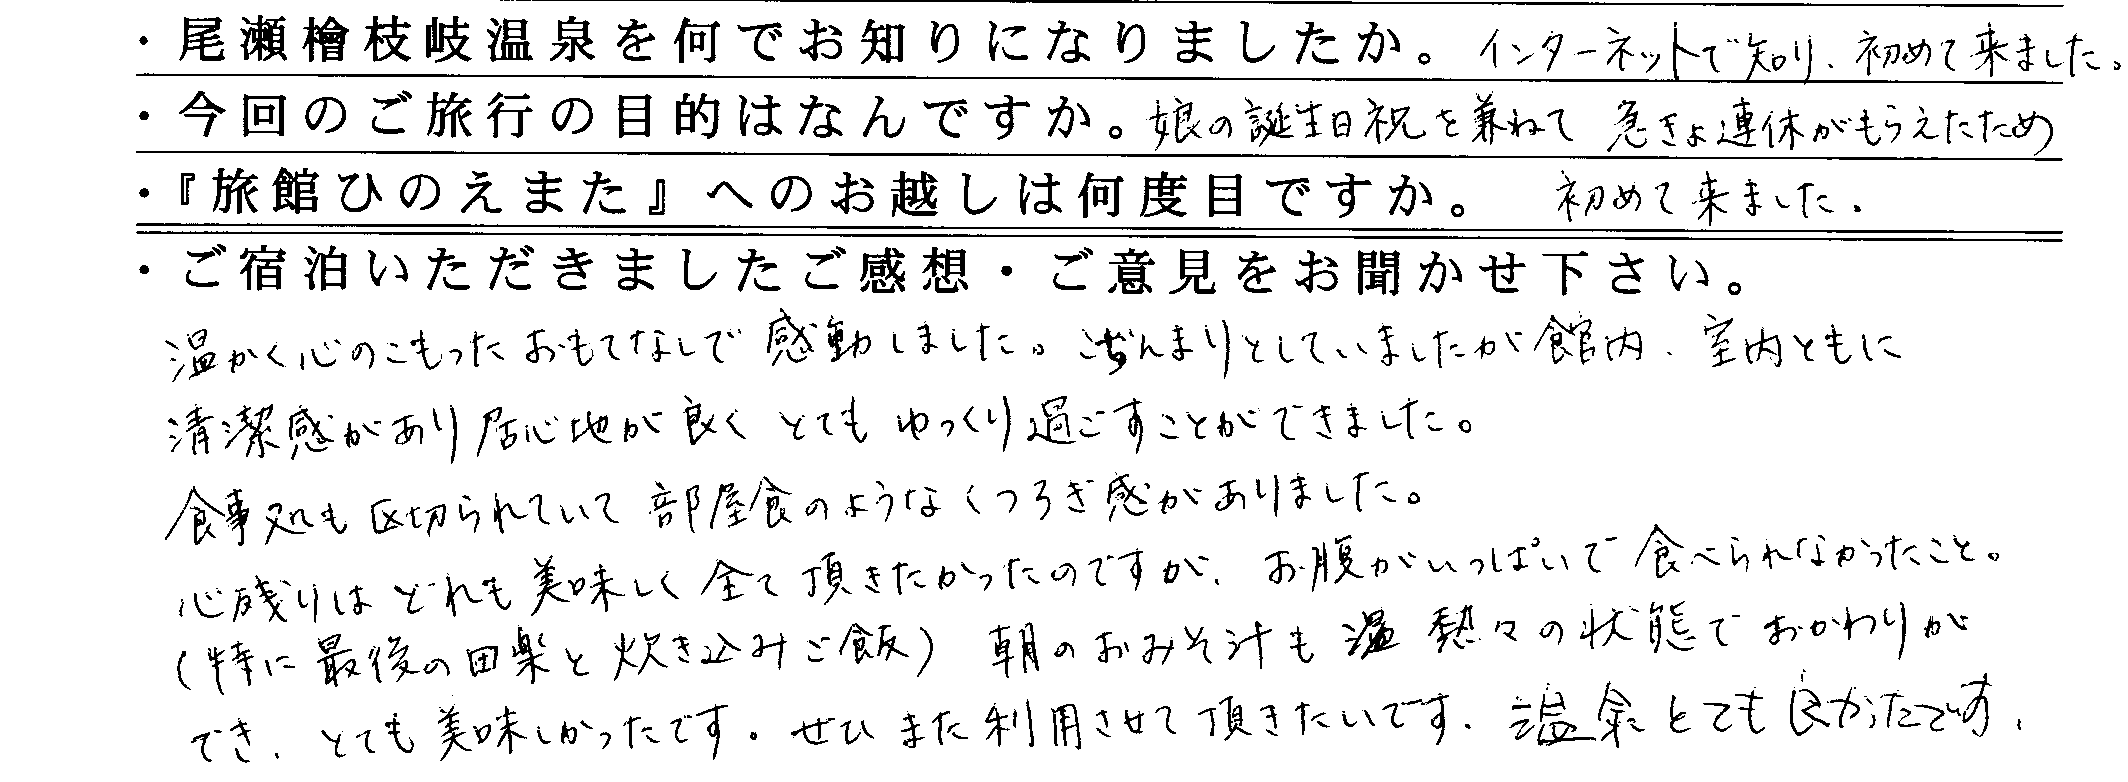 ・尾瀬檜枝岐温泉を何でお知りになりましたか。インターネットで知り、初めて来ました。
・今回のご旅行の目的はなんですか。娘の誕生日祝を兼ねて 急きょ連休がもらえたため
・『旅館ひのえまた』へのお越しは何度目ですか。 初めて来ました。
・ご宿泊いただきましたご感想・ご意見をお聞かせ下さい。
温かく心のこもったおもてなしで感動しました。こぢんまりとしていましたが館内、室内ともに
清潔感があり居心地が良く とても ゆっくり過ごすことができました。
食事処も区切られていて部屋食のようなくつろぎ感がありました。
心残りは どれも美味しく全て頂きたかったのですが、お腹がいっぱいで食べられなかったこと。
(特に最後の田楽と炊き込みご飯) 朝のおみそ汁も温 熱々の状態でおかわりが
でき、とても美味しかったです。ぜひまた利用させて頂きたいです。温泉とても良かったです。